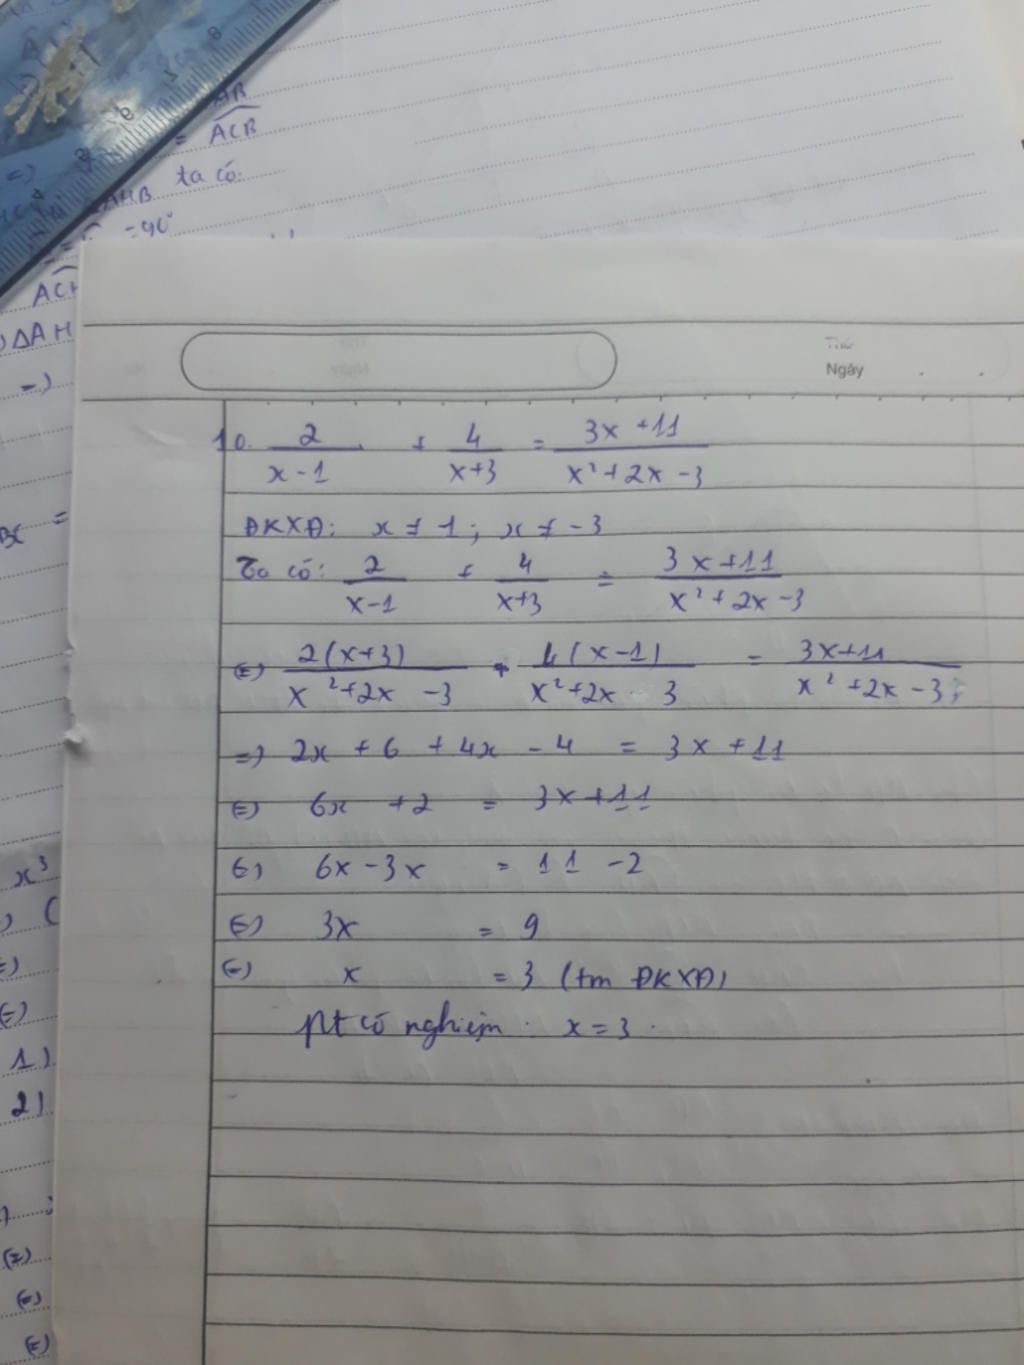 AB
= ACB
=)
AHB ta có:
= 90°
ACH
ΔAH
=)
Thứ
Ngày
10. 2/(x-1) + 4/(x+3) = (3x+11)/(x²+2x-3)
ĐKXĐ: x ≠ 1; x ≠ -3
Ta có: 2/(x-1) + 4/(x+3) = (3x+11)/(x²+2x-3)
(=) 2(x+3)/(x²+2x-3) + 4(x-1)/(x²+2x-3) = (3x+11)/(x²+2x-3)
=) 2x + 6 + 4x - 4 = 3x + 11
(=) 6x + 2 = 3x + 11
(=) 6x - 3x = 11 - 2
(=) 3x = 9
(=) x = 3 (tm ĐKXĐ)
pt có nghiệm: x = 3.
BC =
x³
1)
2)
(=)
(=)
(=)